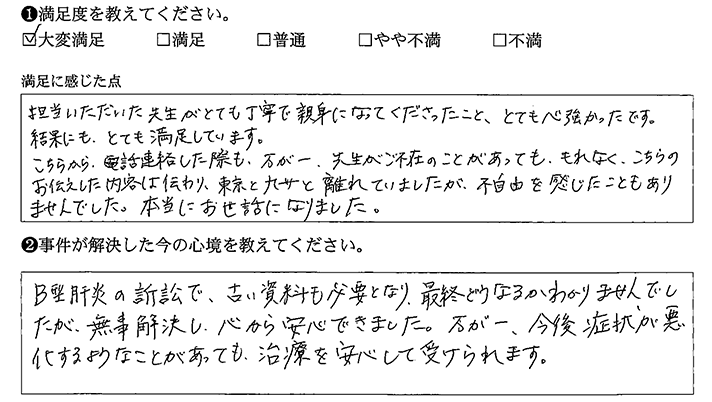 ❶満足度を教えてください。
☑大変満足 □満足 □普通 □やや不満 □不満
満足に感じた点
担当いただいた先生がとても丁寧で親身になってくださったこと、とても心強かったです。
結果にも、とても満足しています。
こちらから、電話連絡した際も、万が一、先生がご不在のことがあっても、もれなく、こちらの
お伝えした内容は伝わり、東京と九州と離れていましたが、不自由を感じたこともあり
ませんでした。本当にお世話になりました。
❷事件が解決した今の心境を教えてください。
B型肝炎の訴訟で、古い資料も必要となり、最終どうなるかわかりませんでし
たが、無事解決し、心から安心できました。万が一、今後症状が悪
化するようなことがあっても、治療を安心して受けられます。